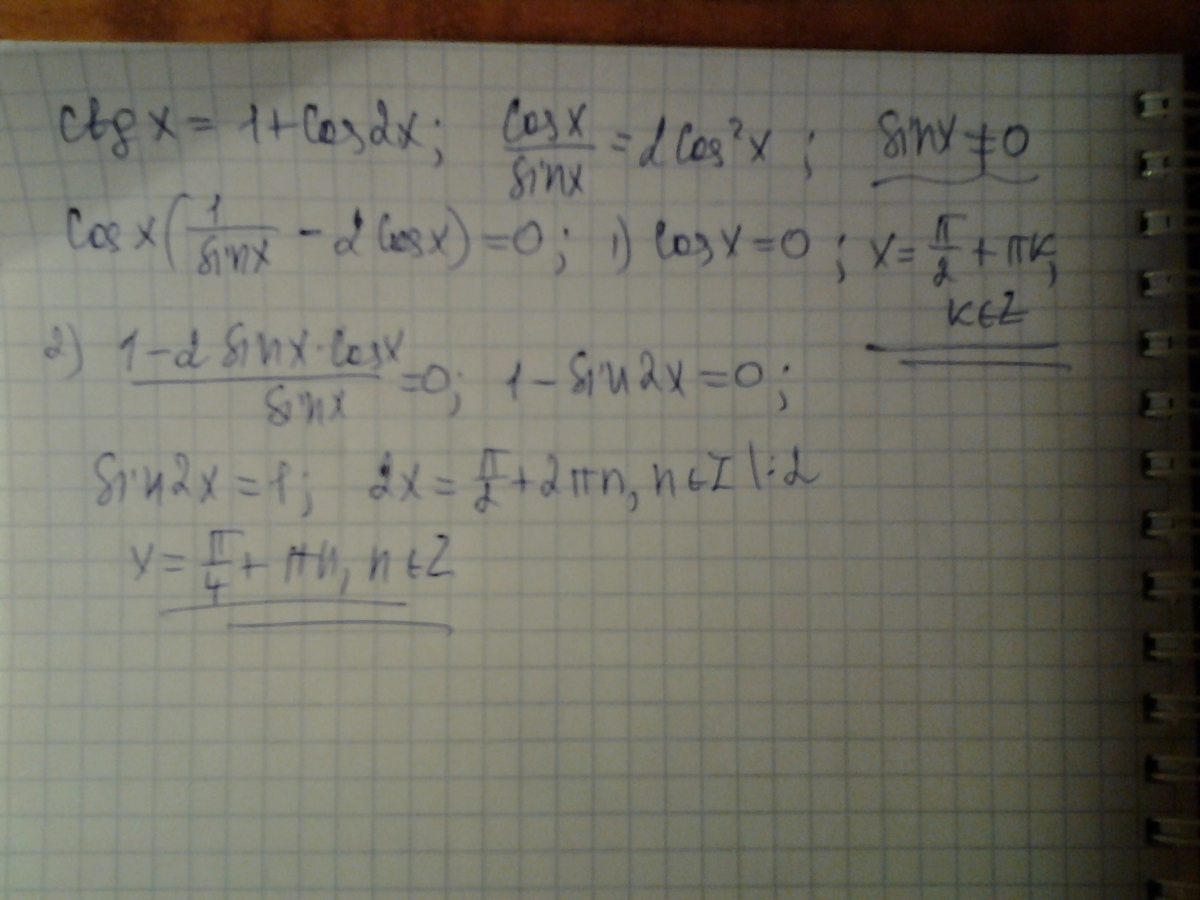 ctg x = 1 + cos 2x; cos x / sin x = 2 cos² x; sin x ≠ 0
cos x (1 / sin x - 2 cos x) = 0; 1) cos x = 0; x = π/2 + πk,
k ∈ Z
2) (1 - 2 sin x · cos x) / sin x = 0; 1 - sin 2x = 0;
sin 2x = 1; 2x = π/2 + 2πn, n ∈ Z |:2
x = π/4 + πn, n ∈ Z